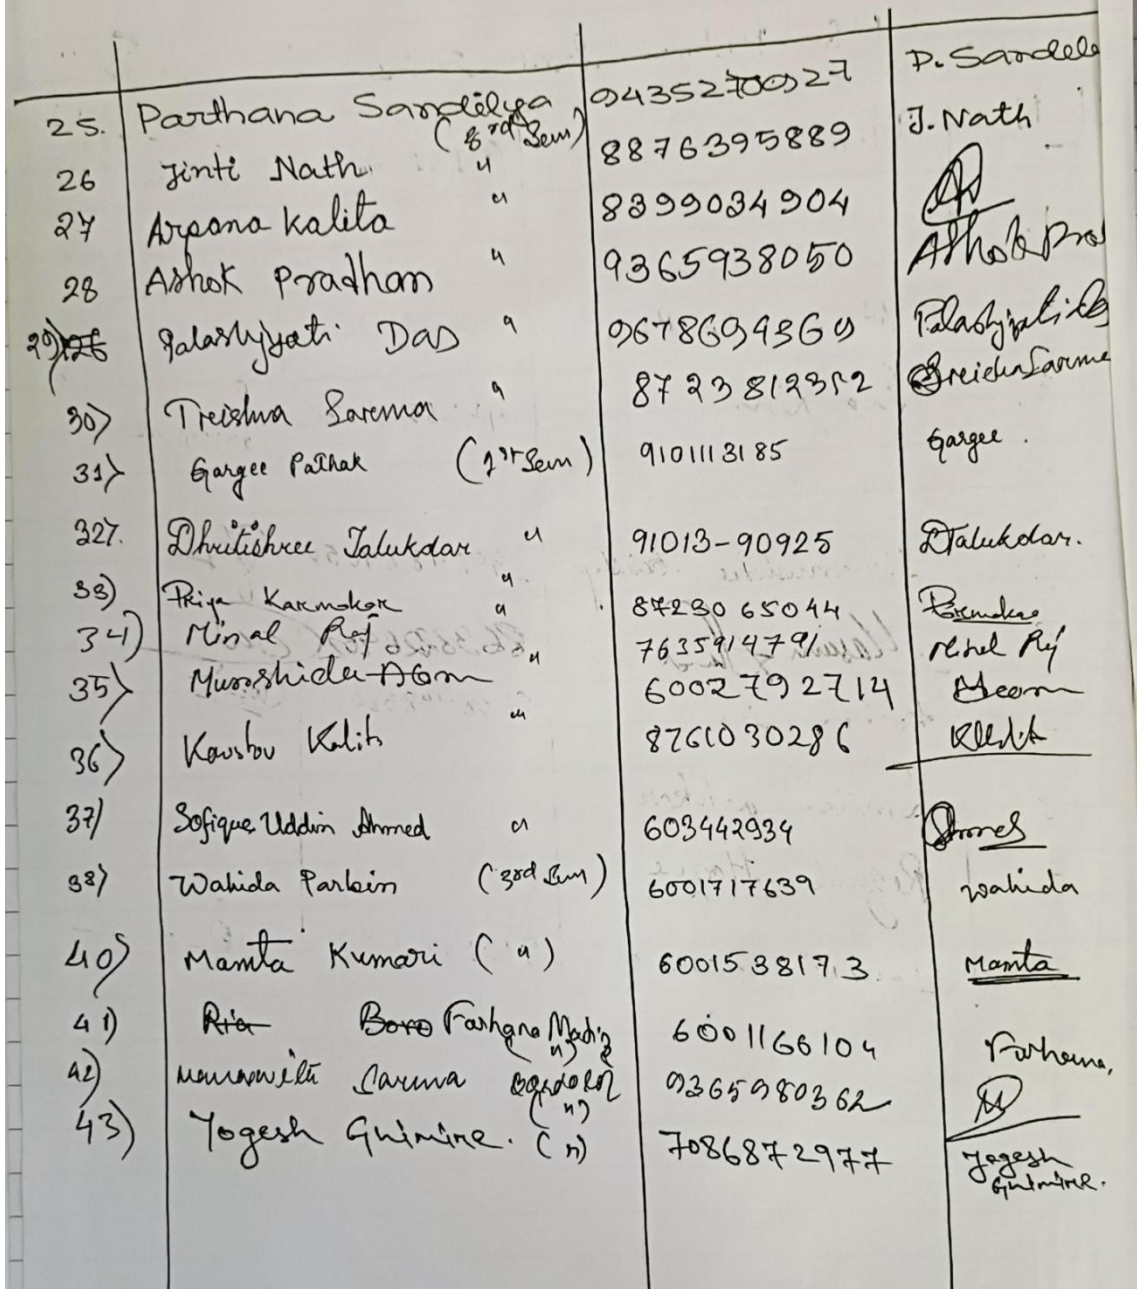 25. Parthana Sandilya (3rd Sem) 9435270927 P. Sandele
26 Jinti Nath " 8876395889 J. Nath
27 Arpana Kalita " 8399034904
28 Ashok Pradhan " 9365938050 Ashok Prad
29) Palashjyoti Das " 9678694369 Palashjyoti Das
30) Treishna Sarema " 8723812352 Treishna Sarme
31) Gargee Pathak (1st Sem) 9101113185 Gargee.
32). Dhritishree Talukdar " 91013-90925 DTalukdar.
33) Priya Karmokar " 87230 65044
34) Minal Rej " 7635914791
35) Murshida " 6002792714
36) Koustov Kalita " 8761030286
37) Sofique Uddin Ahmed " 603442934
38) Wahida Parbin (3rd Sem) 6001717639 Wahida
40) Mamta Kumari (") 6001538173 Mamta
41) Ria Boro Farhana (") 6001166104 Farhana,
42) Saruma (") 9365980362
43) Yogesh Ghimire. (") 7086872977 Yogesh Ghimire.